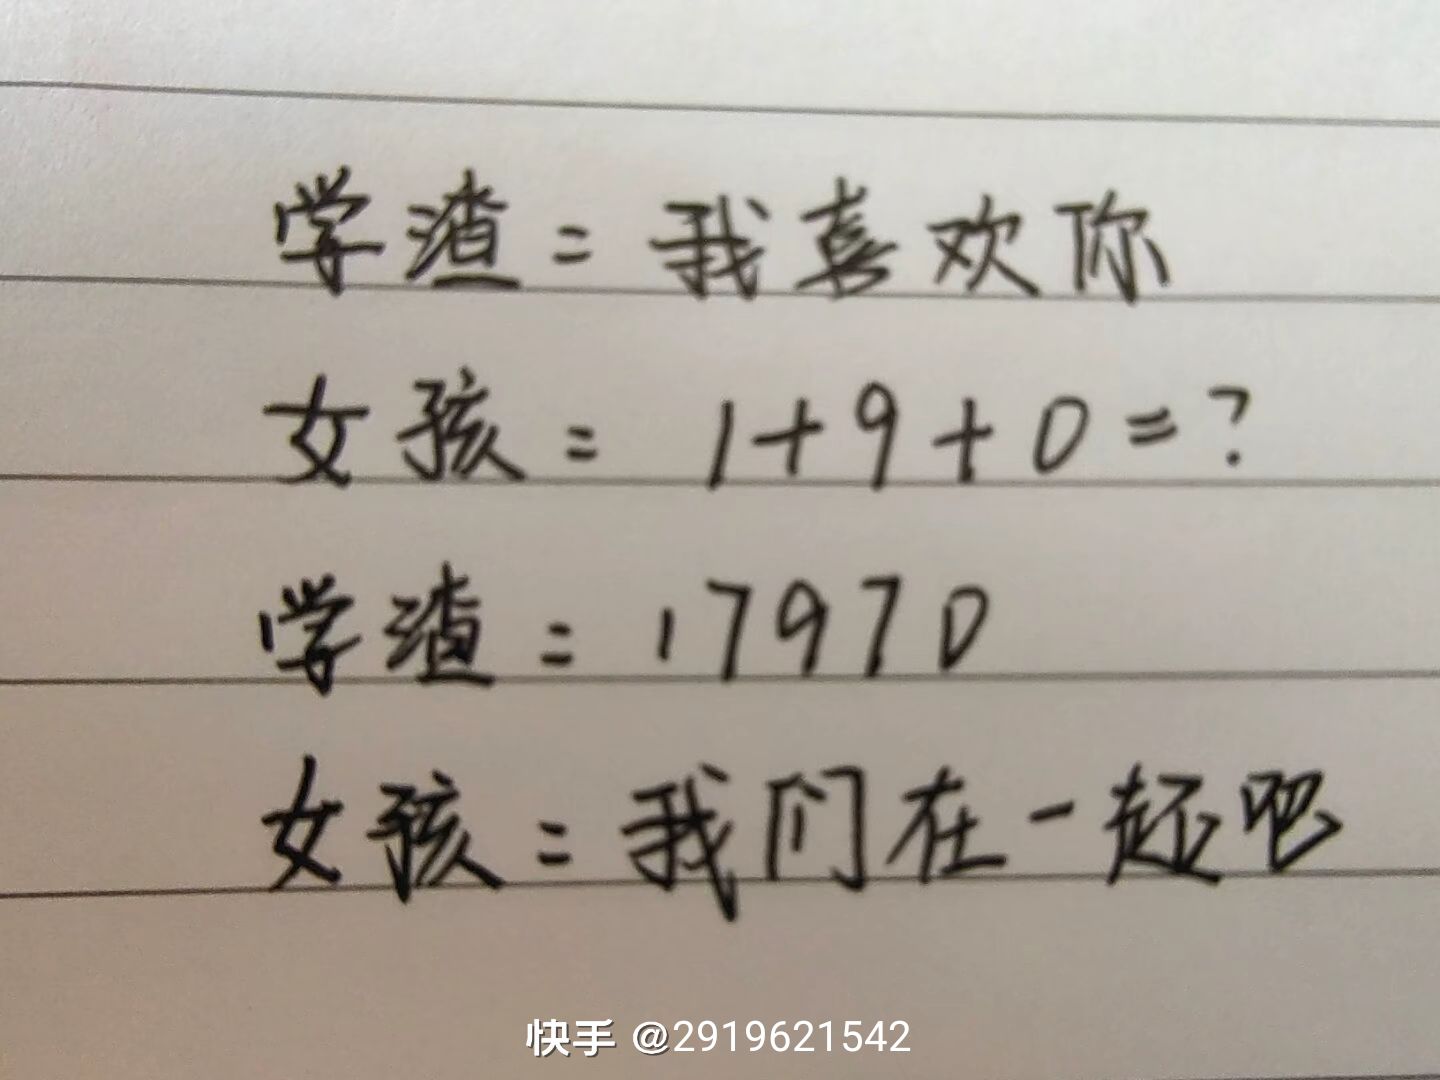 学渣=我喜欢你
女孩=1+9+0=?
学渣=17970
女孩=我们在一起吧
快手 @2919621542